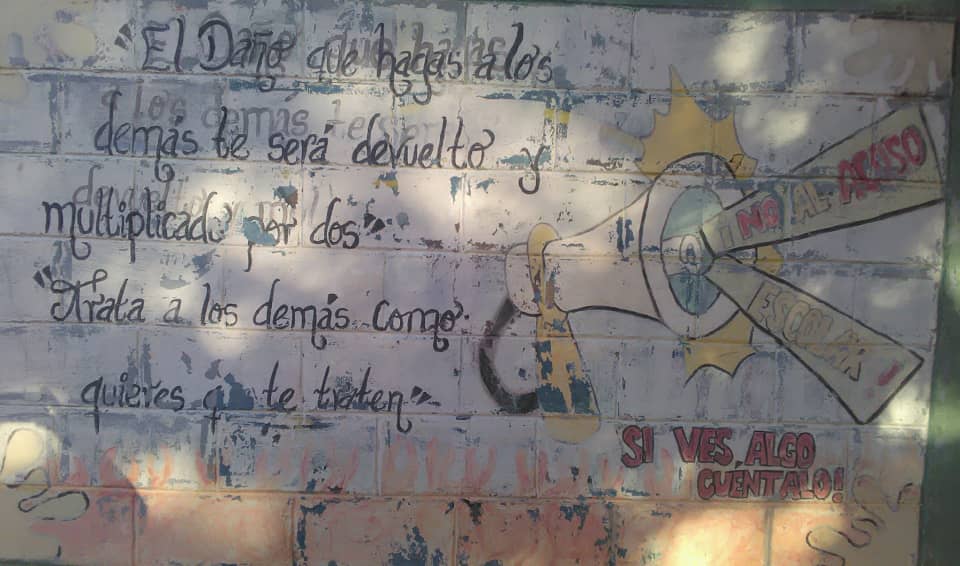 "El Daño que hagas a los
demás te será devuelto y
multiplicado por dos".
"Trata a los demás como
quieres que te traten"
¡NO AL ACOSO
ESCOLAR!
SI VES ALGO
CUÉNTALO!